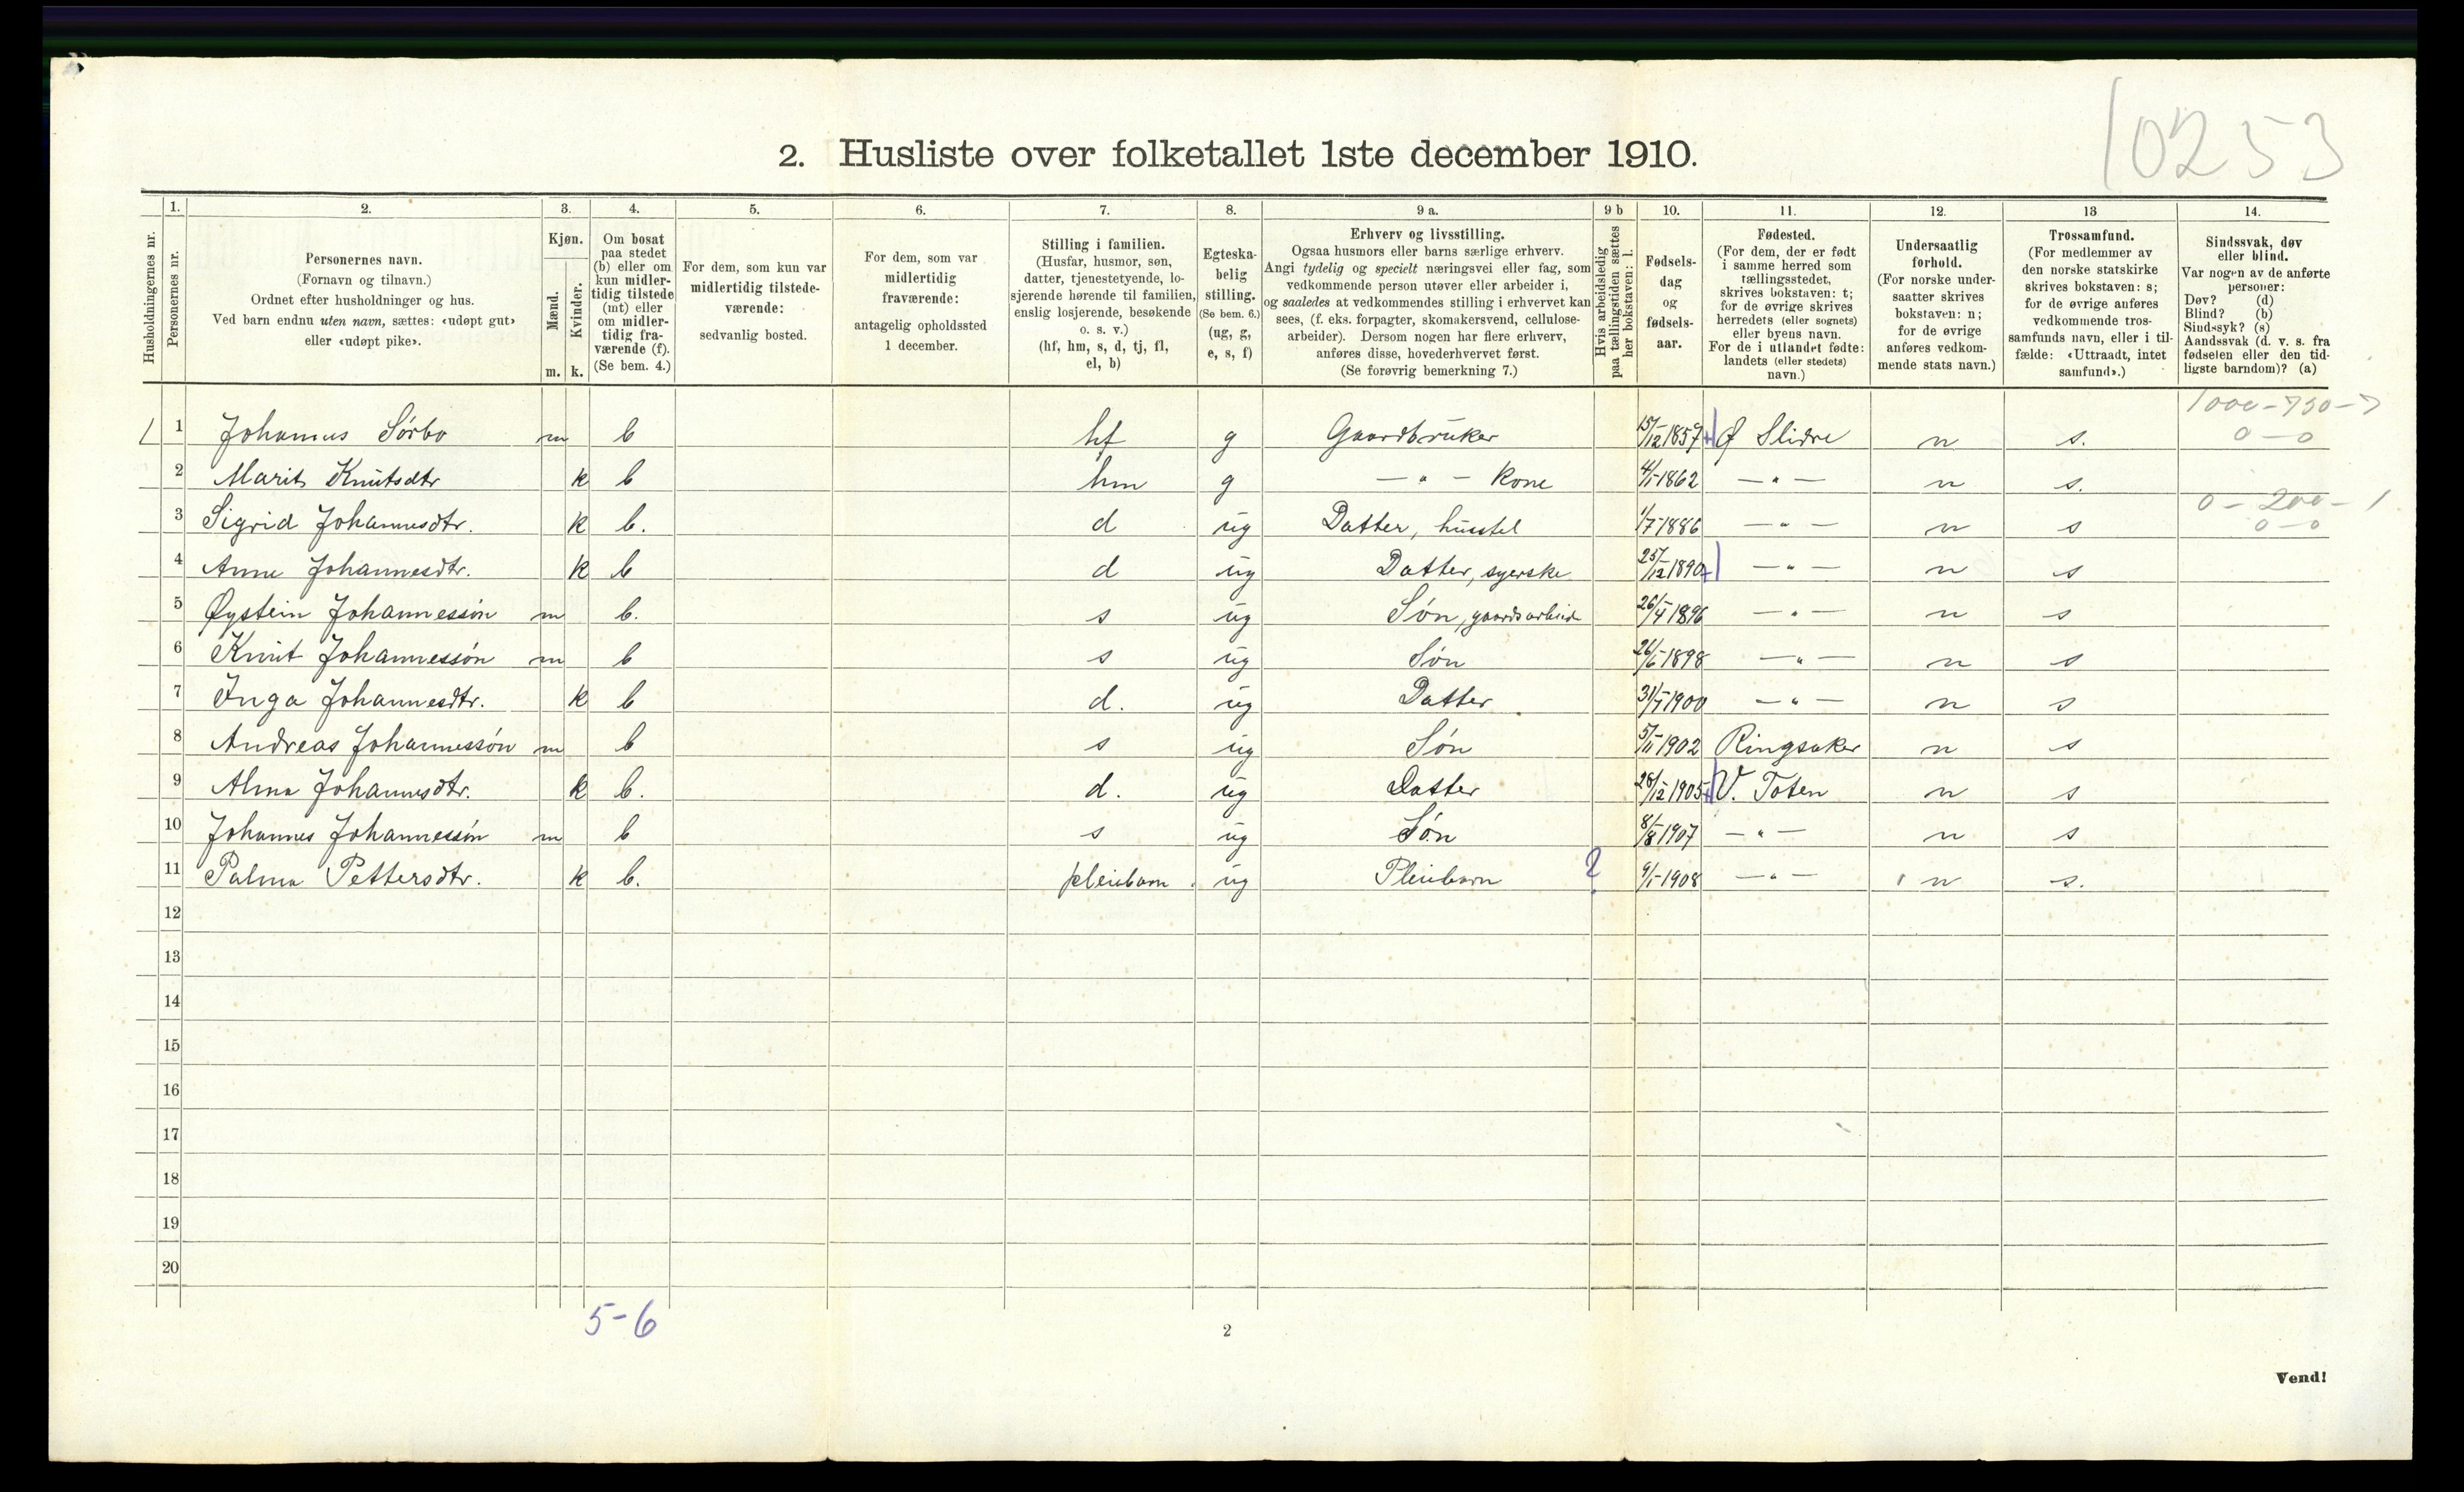 10253
2. Husliste over folketallet 1ste december 1910.
Husholdningernes nr.
1. Personernes nr.
2. Personernes navn.
(Fornavn og tilnavn.)
Ordnet efter husholdninger og hus.
Ved barn endnu uten navn, sættes: «udøpt gut»
eller «udøpt pike».
3. Kjøn.
Mænd. Kvinder.
m. k.
4. Om bosat
paa stedet
(b) eller om
kun midler-
tidig tilstede
(mt) eller
om midler-
tidig fra-
værende (f).
(Se bem. 4.)
5. For dem, som kun var
midlertidig tilstede-
værende:
sedvanlig bosted.
6. For dem, som var
midlertidig
fraværende:
antagelig opholdssted
1 december.
7. Stilling i familien.
(Husfar, husmor, søn,
datter, tjenestetyende, lo-
sjerende hørende til familien,
enslig losjerende, besøkende
o. s. v.)
(hf, hm, s, d, tj, fl,
el, b)
8. Egteska-
belig
stilling.
(Se bem. 6.)
(ug, g,
e, s, f)
9 a. Erhverv og livsstilling.
Ogsaa husmors eller barns særlige erhverv.
Angi tydelig og specielt næringsvei eller fag, som
vedkommende person utøver eller arbeider i,
og saaledes at vedkommendes stilling i erhvervet kan
sees, (f. eks. forpagter, skomakersvend, cellulose-
arbeider). Dersom nogen har flere erhverv,
anføres disse, hovederhvervet først.
(Se forøvrig bemerkning 7.)
9 b Hvis arbeidsledig
paa tællingstiden sættes
her bokstaven: l.
10. Fødsels-
dag
og
fødsels-
aar.
11. Fødested.
(For dem, der er født
i samme herred som
tællingsstedet,
skrives bokstaven: t;
for de øvrige skrives
herredets (eller sognets)
eller byens navn.
For de i utlandet fødte:
landets (eller stedets)
navn.)
12. Undersaatlig
forhold.
(For norske under-
saatter skrives
bokstaven: n;
for de øvrige
anføres vedkom-
mende stats navn.)
13 Trossamfund.
(For medlemmer av
den norske statskirke
skrives bokstaven: s;
for de øvrige anføres
vedkommende tros-
samfunds navn, eller i til-
fælde: «Uttraadt, intet
samfund».)
14. Sindssvak, døv
eller blind.
Var nogen av de anførte
personer:
Døv? (d)
Blind? (b)
Sindssyk? (s)
Aandssvak (d. v. s. fra
fødselen eller den tid-
ligste barndom)? (a)
1000-750-7
1 1 Johannes Sørbo m b hf g Gaardbruker 15/12 1857 Ø Slidre n s. 0-0
2 Marit Knutsdtr k b hm g — " — kone 4/1-1862 — " — n s.
0-200-1
3 Sigrid Johannesdtr. k b. d ug Datter, husstel 1/7-1886 — " — n s 0-0
4 Anne Johannesdtr. k b d ug Datter, syerske 25/12 1890 — " — n s
5 Øystein Johannessøn m b. s ug Søn, gaardsarbeide 26/4 1896 — " — n s
6 Knut Johannessøn m b s ug Søn 26/6-1898 — " — n s
7 Inga Johannesdtr. k b d. ug Datter 31/7 1900 — " — n s
8 Andreas Johannessøn m b s ug Søn 5/11 1902 Ringsaker n s
9 Alma Johannesdtr. k b. d. ug Datter 28/12 1905 V. Toten n s
10 Johannes Johannessøn m b s ug Søn 8/8 1907 — " — n s
11 Palma Pettersdtr. k b. pleiebarn ug Pleiebarn ? 9/1-1908 — " — n s.
12
13
14
15
16
17
18
19
20
5-6
2
Vend!